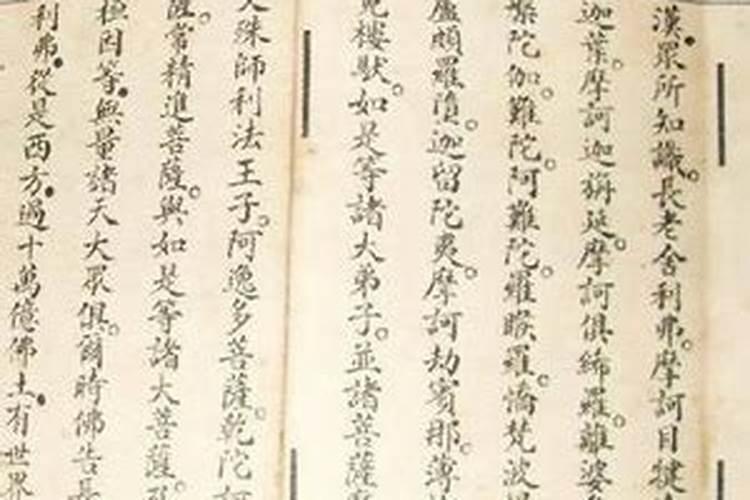 漢眾所知識長老舍利弗摩訶目揵
迦葉摩訶迦旃延摩訶俱絺羅離婆
槃陀伽難陀阿難陀羅睺羅憍梵波
盧頗羅墮迦留陀夷摩訶劫賓那薄
樓馱如是等諸大弟子並諸菩薩
殊師利法王子阿逸多菩薩乾陀訶
薩常精進菩薩與如是等諸大菩薩
桓因等無量諸天大眾俱爾時佛告長
利弗從是西方過十萬億佛土有世界